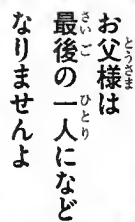 お父様は
最後の一人になど
なりませんよ